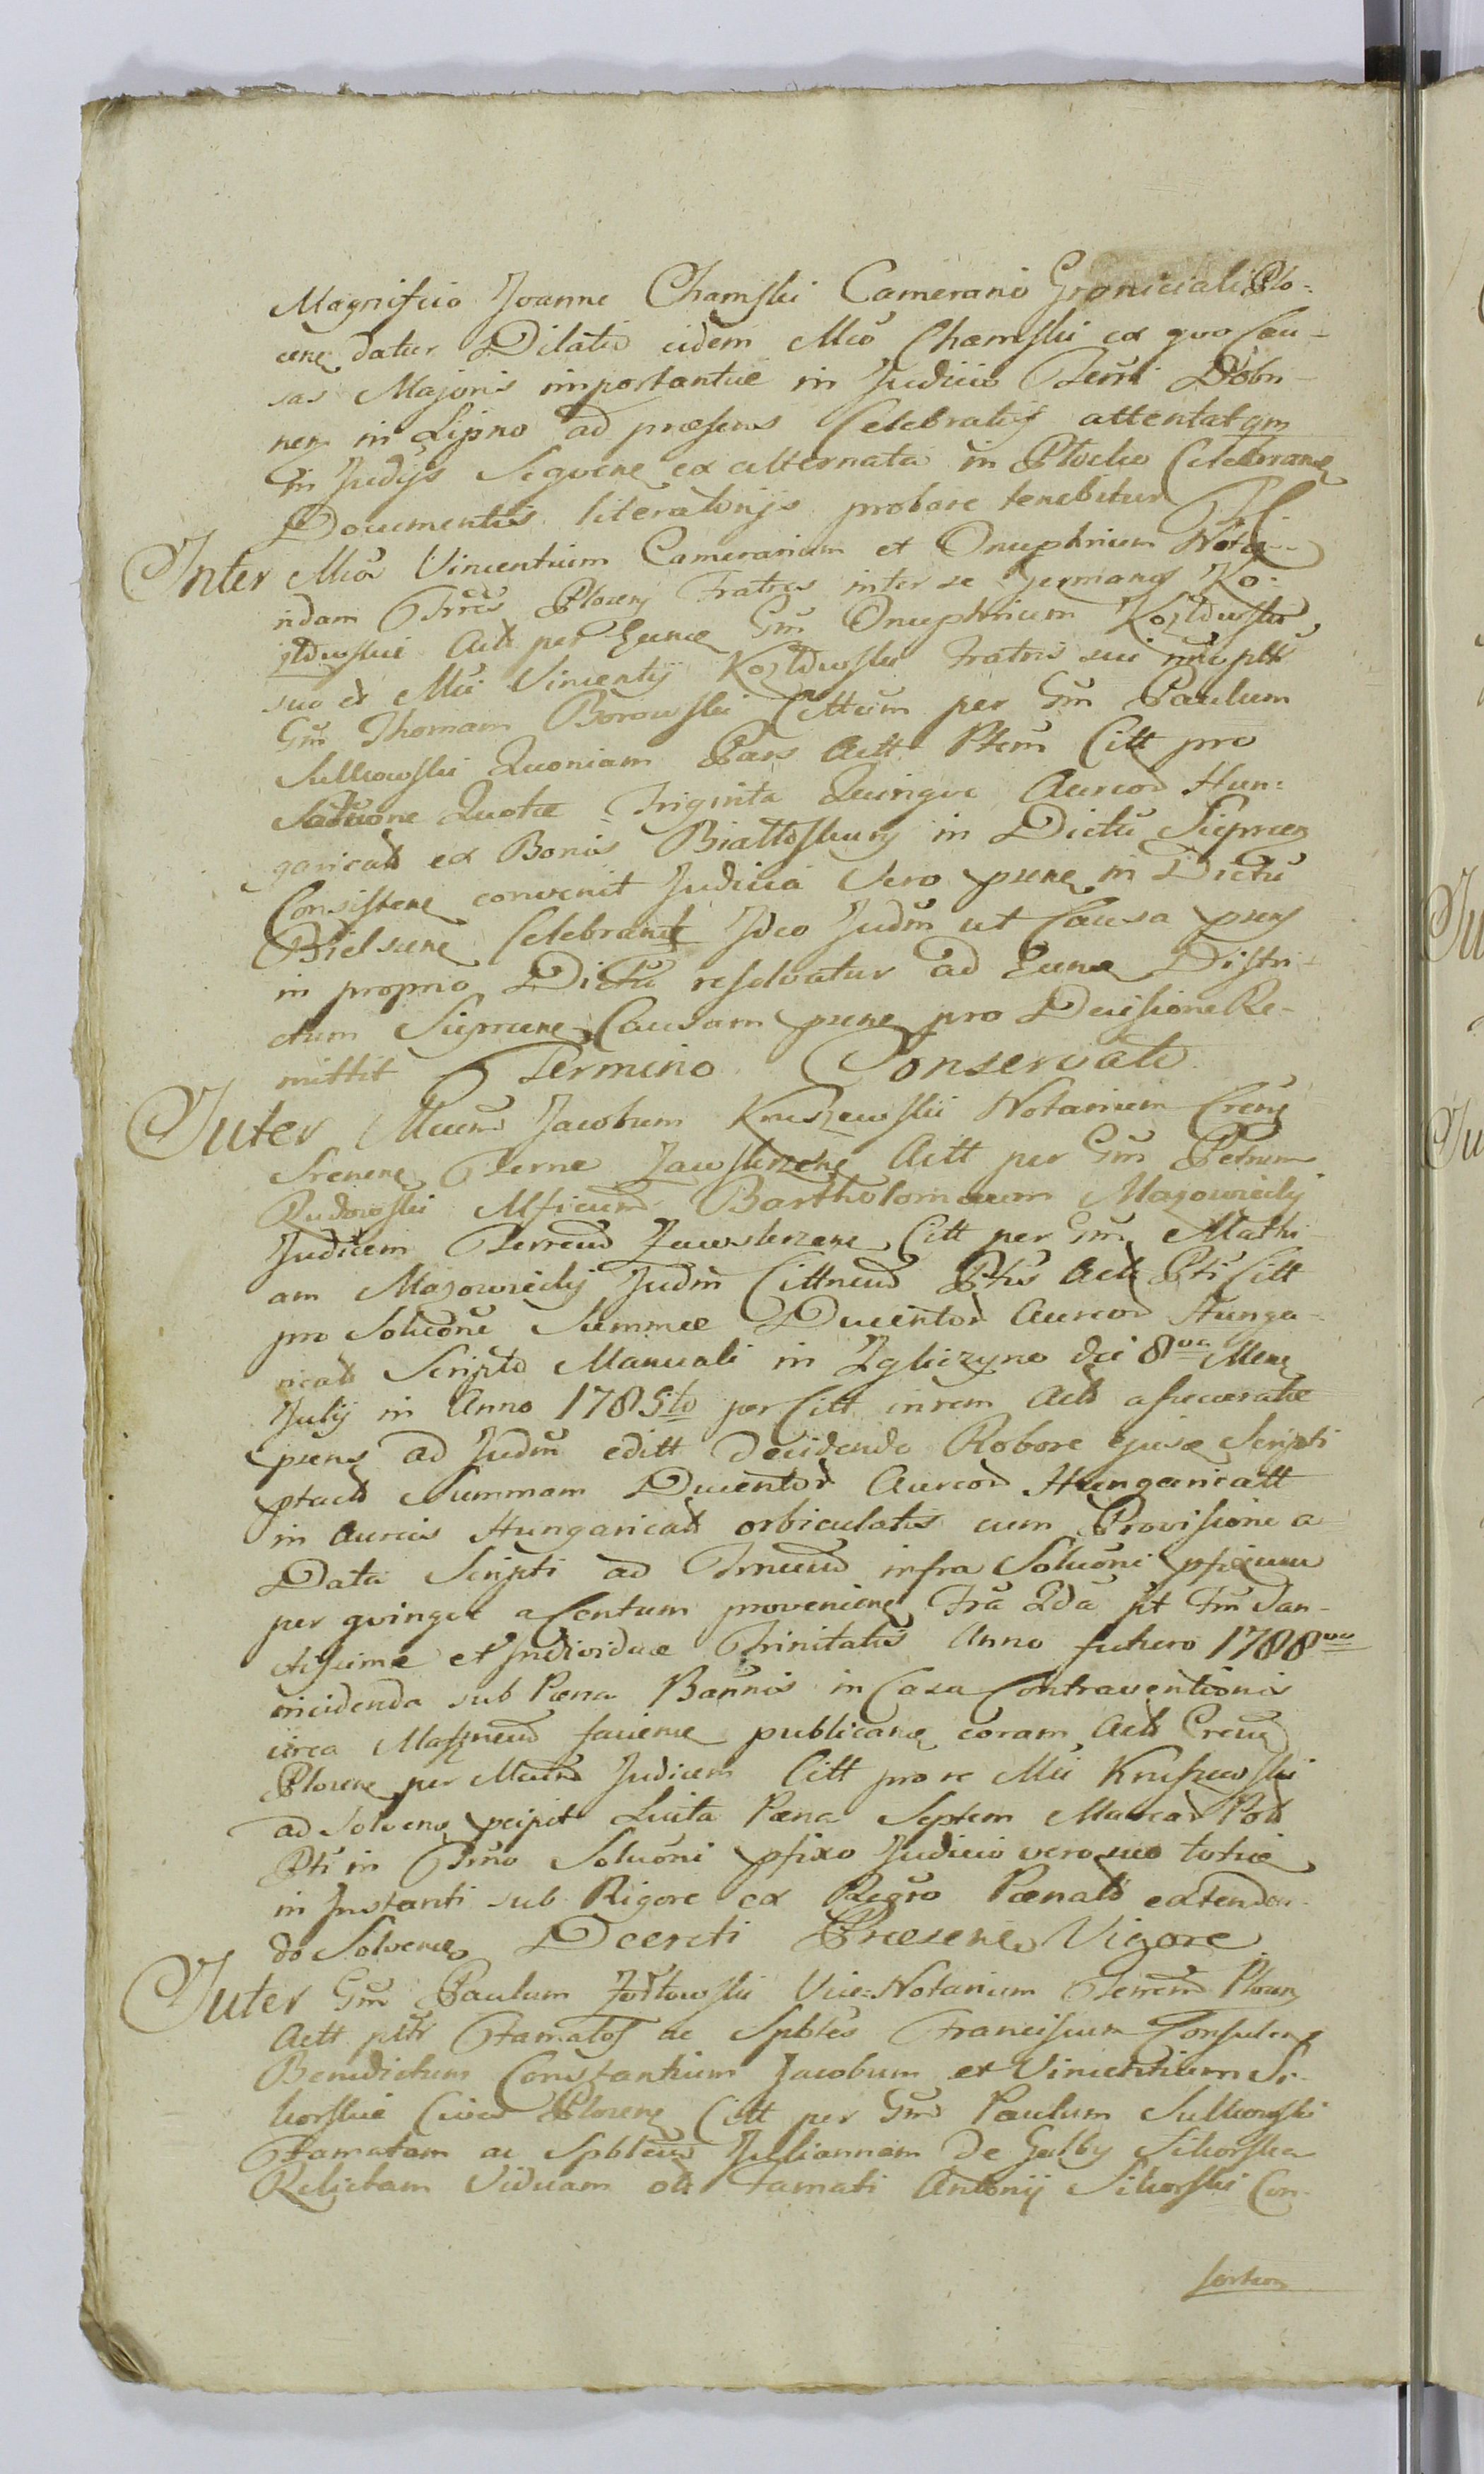 Magnifico Joanne Chamski Camerario Graniciali Plo-
cen datur Dilatio eidem Mco Chamski ex quo Cau-
sas Majoris importantiæ in Judicio Terri Dobri-
nen in Lipno ad præsens Celebratis attentat qm
in Judijs Sequen ex alternata in Plocko Celebran
Documentis literatorijs probare tenebitur
Inter Mcos Vincentium Camerarium et Onuphrium Nota-
ridam Trres Plocen Fratres inter se germanos Ko-
złowskie Act per Eunde Gm Onuphrium Kozłowski
suo et Mci Vincentij Kozłowski Fratris sui nne ptt
Gm Thomam Borowski Cittum per Gm Paulum
Sulkowski Quoniam Pars Act Ptem Citt pro
Solutione Quotæ Triginta Quinque Aureor Hun-
garicals ex Bonis Białłoskury in Dictu Sieprcen
Consisten convenit Judicia Vero præn in Dictu
Bielscen Celebrand Ideo Judm ut Causa præn
in proprio Dictu resolvatur ad Eunde Distri-
ctum Sieprcen Causam præn pro Decisione Re-
mittit Termino Conservato
Inter Mcum Jacobum Kruszewski Notarium Cren
Srenen Terrae Zawskrzen Actt per Gm Petrum
Rudowski Mficum Bartholomæum Mazowiecky
Judicem Terreum Zawskrzen Citt per Gm Mathi-
am Mazowiecky Judm Cittneum Ptis Act Pti Citt
pro Solucone Summæ Ducentor Aureor Hunga-
ricals Scripto Manuali in Zgliczyno die 8va Men
Julij in Anno 1785to per Citt in rem Act assecuratæ
præns ad Judm editt decidendo Robore ejusd Scripti
ptacti Summam Ducentor Aureor Hungaricatt
in Aureis Hungaricals orbiculatis cum Provisione a
Data Scripti ad Trnum infra Solucõni pfixum
per quinque a Centum provenien Fra 2da pt Fm San-
ctissimæ et Individuæ Trinitatis Anno futuro 1788vo
incidenda sub Pæna Bannis in Casu Contraventionis
circa Mazneum faciend publicand coram Act Cren
Plocen per Mcum Judicem Citt pro re Mci Kruszewski
ad Solvend pcipit Luita Pæna Septem Marcar Pol
Pti in Trno Solucõni pfixo Judicio vero suo totiæ
in Instanti sub Rigore ex Regro Pænals extenden-
do Solvend Decreti Præsen Vigore
Inter Gm Paulum Zółtowski Vice-Notarium Terreum Plocen
Actt ptr Famatos ac Spbles Franciscum Consulem
Benedictum Constantium Jacobum et Vincentium Si-
korskie Cives Plocen Citt per Gm Paulum Sulkowski
Famatam ac Spblem Juliannam de Galby Sikorska
Relictam Viduam oli Famati Antonij Sikorski Con-
sortem